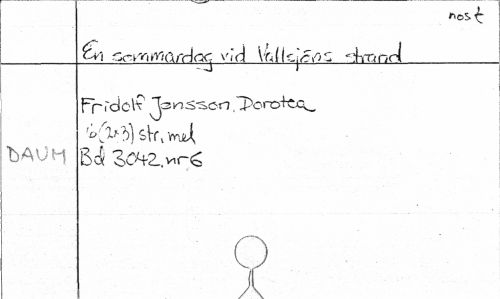 nost
En sommardag vid Vallsjöns strand
Fridolf Jonsson. Dorotea
6(2+3) str, mel
DAUM Bd 3042.nr 6